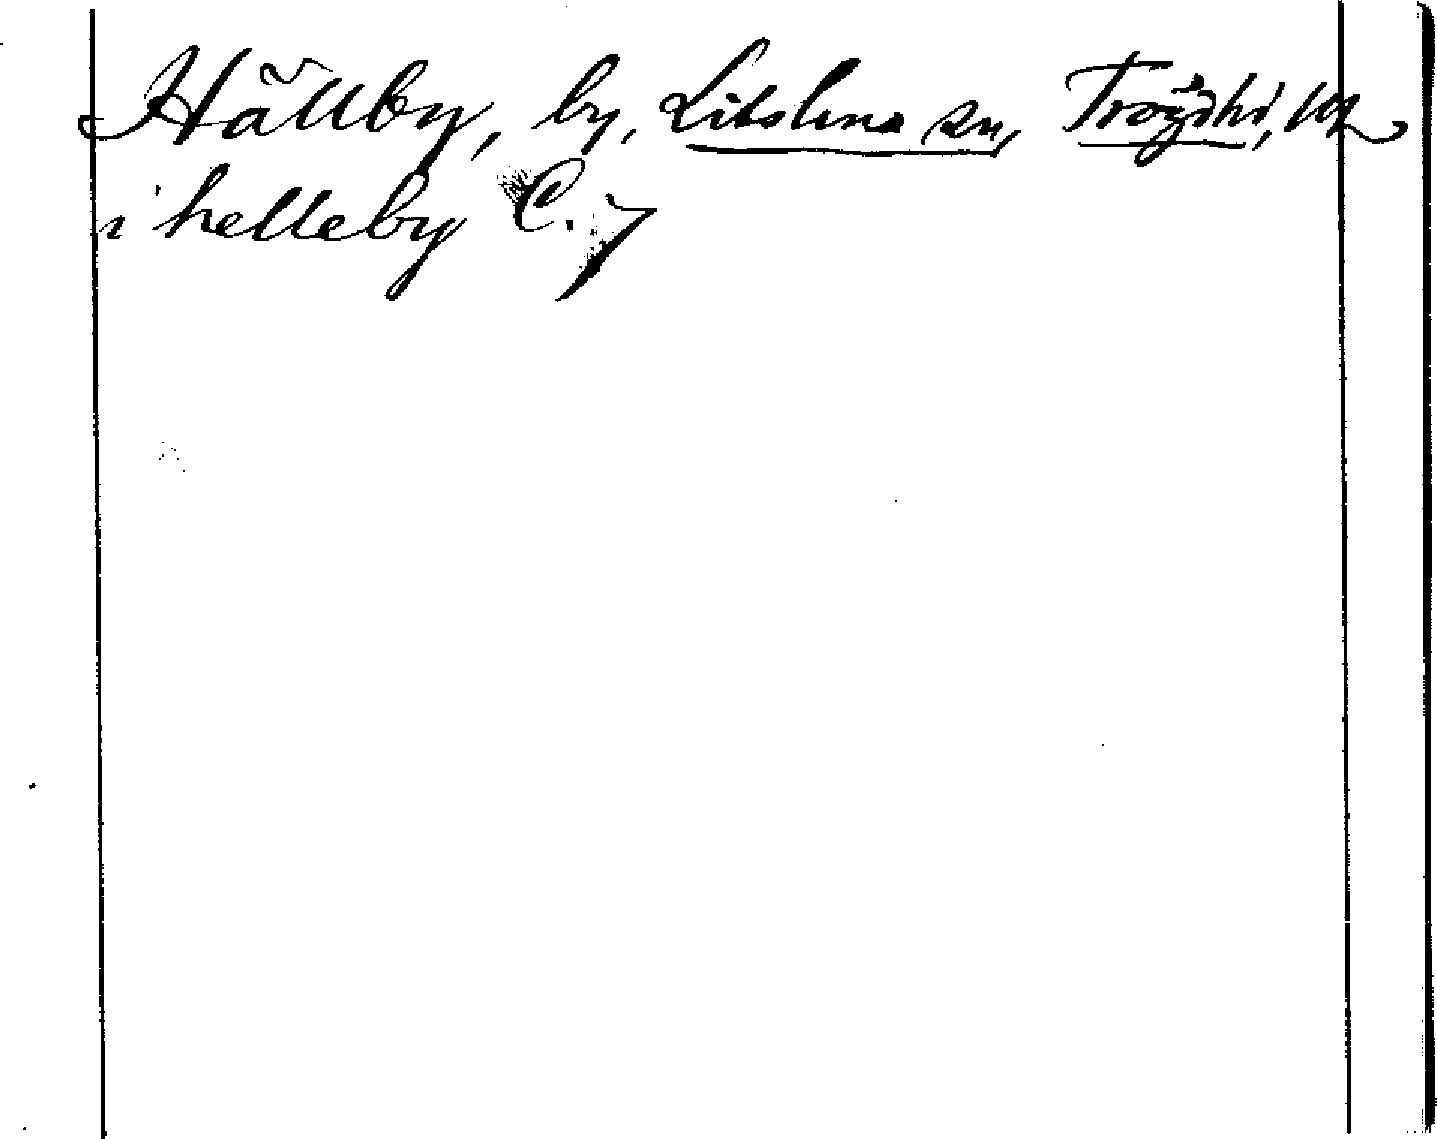 Hällby, by, Litslena sn, Trögds hd, Upl
i helleby C. 7